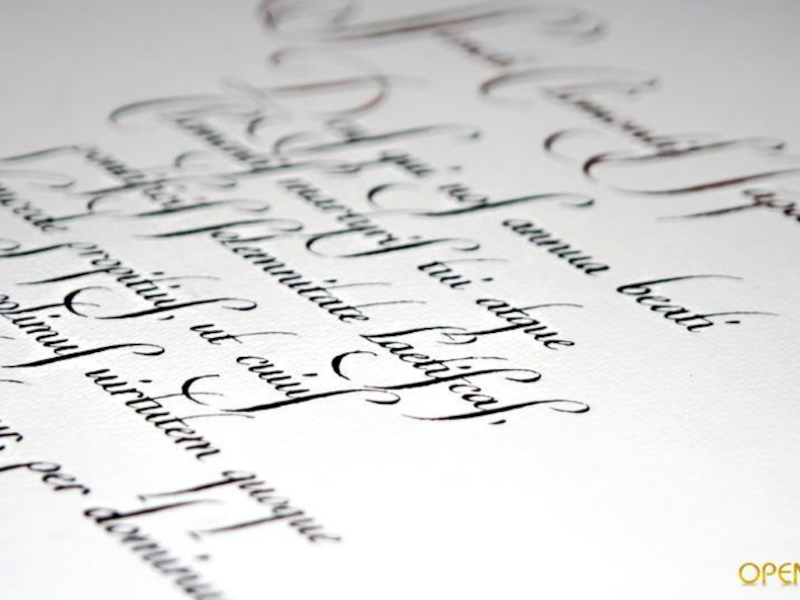 Sancti Clementis Papae
Deus qui nos annua beati
Clementis martyris tui atque
pontificis solemnitate laetificas,
propitius, ut cuius
uirtutem quoque
per dominum
OPEN